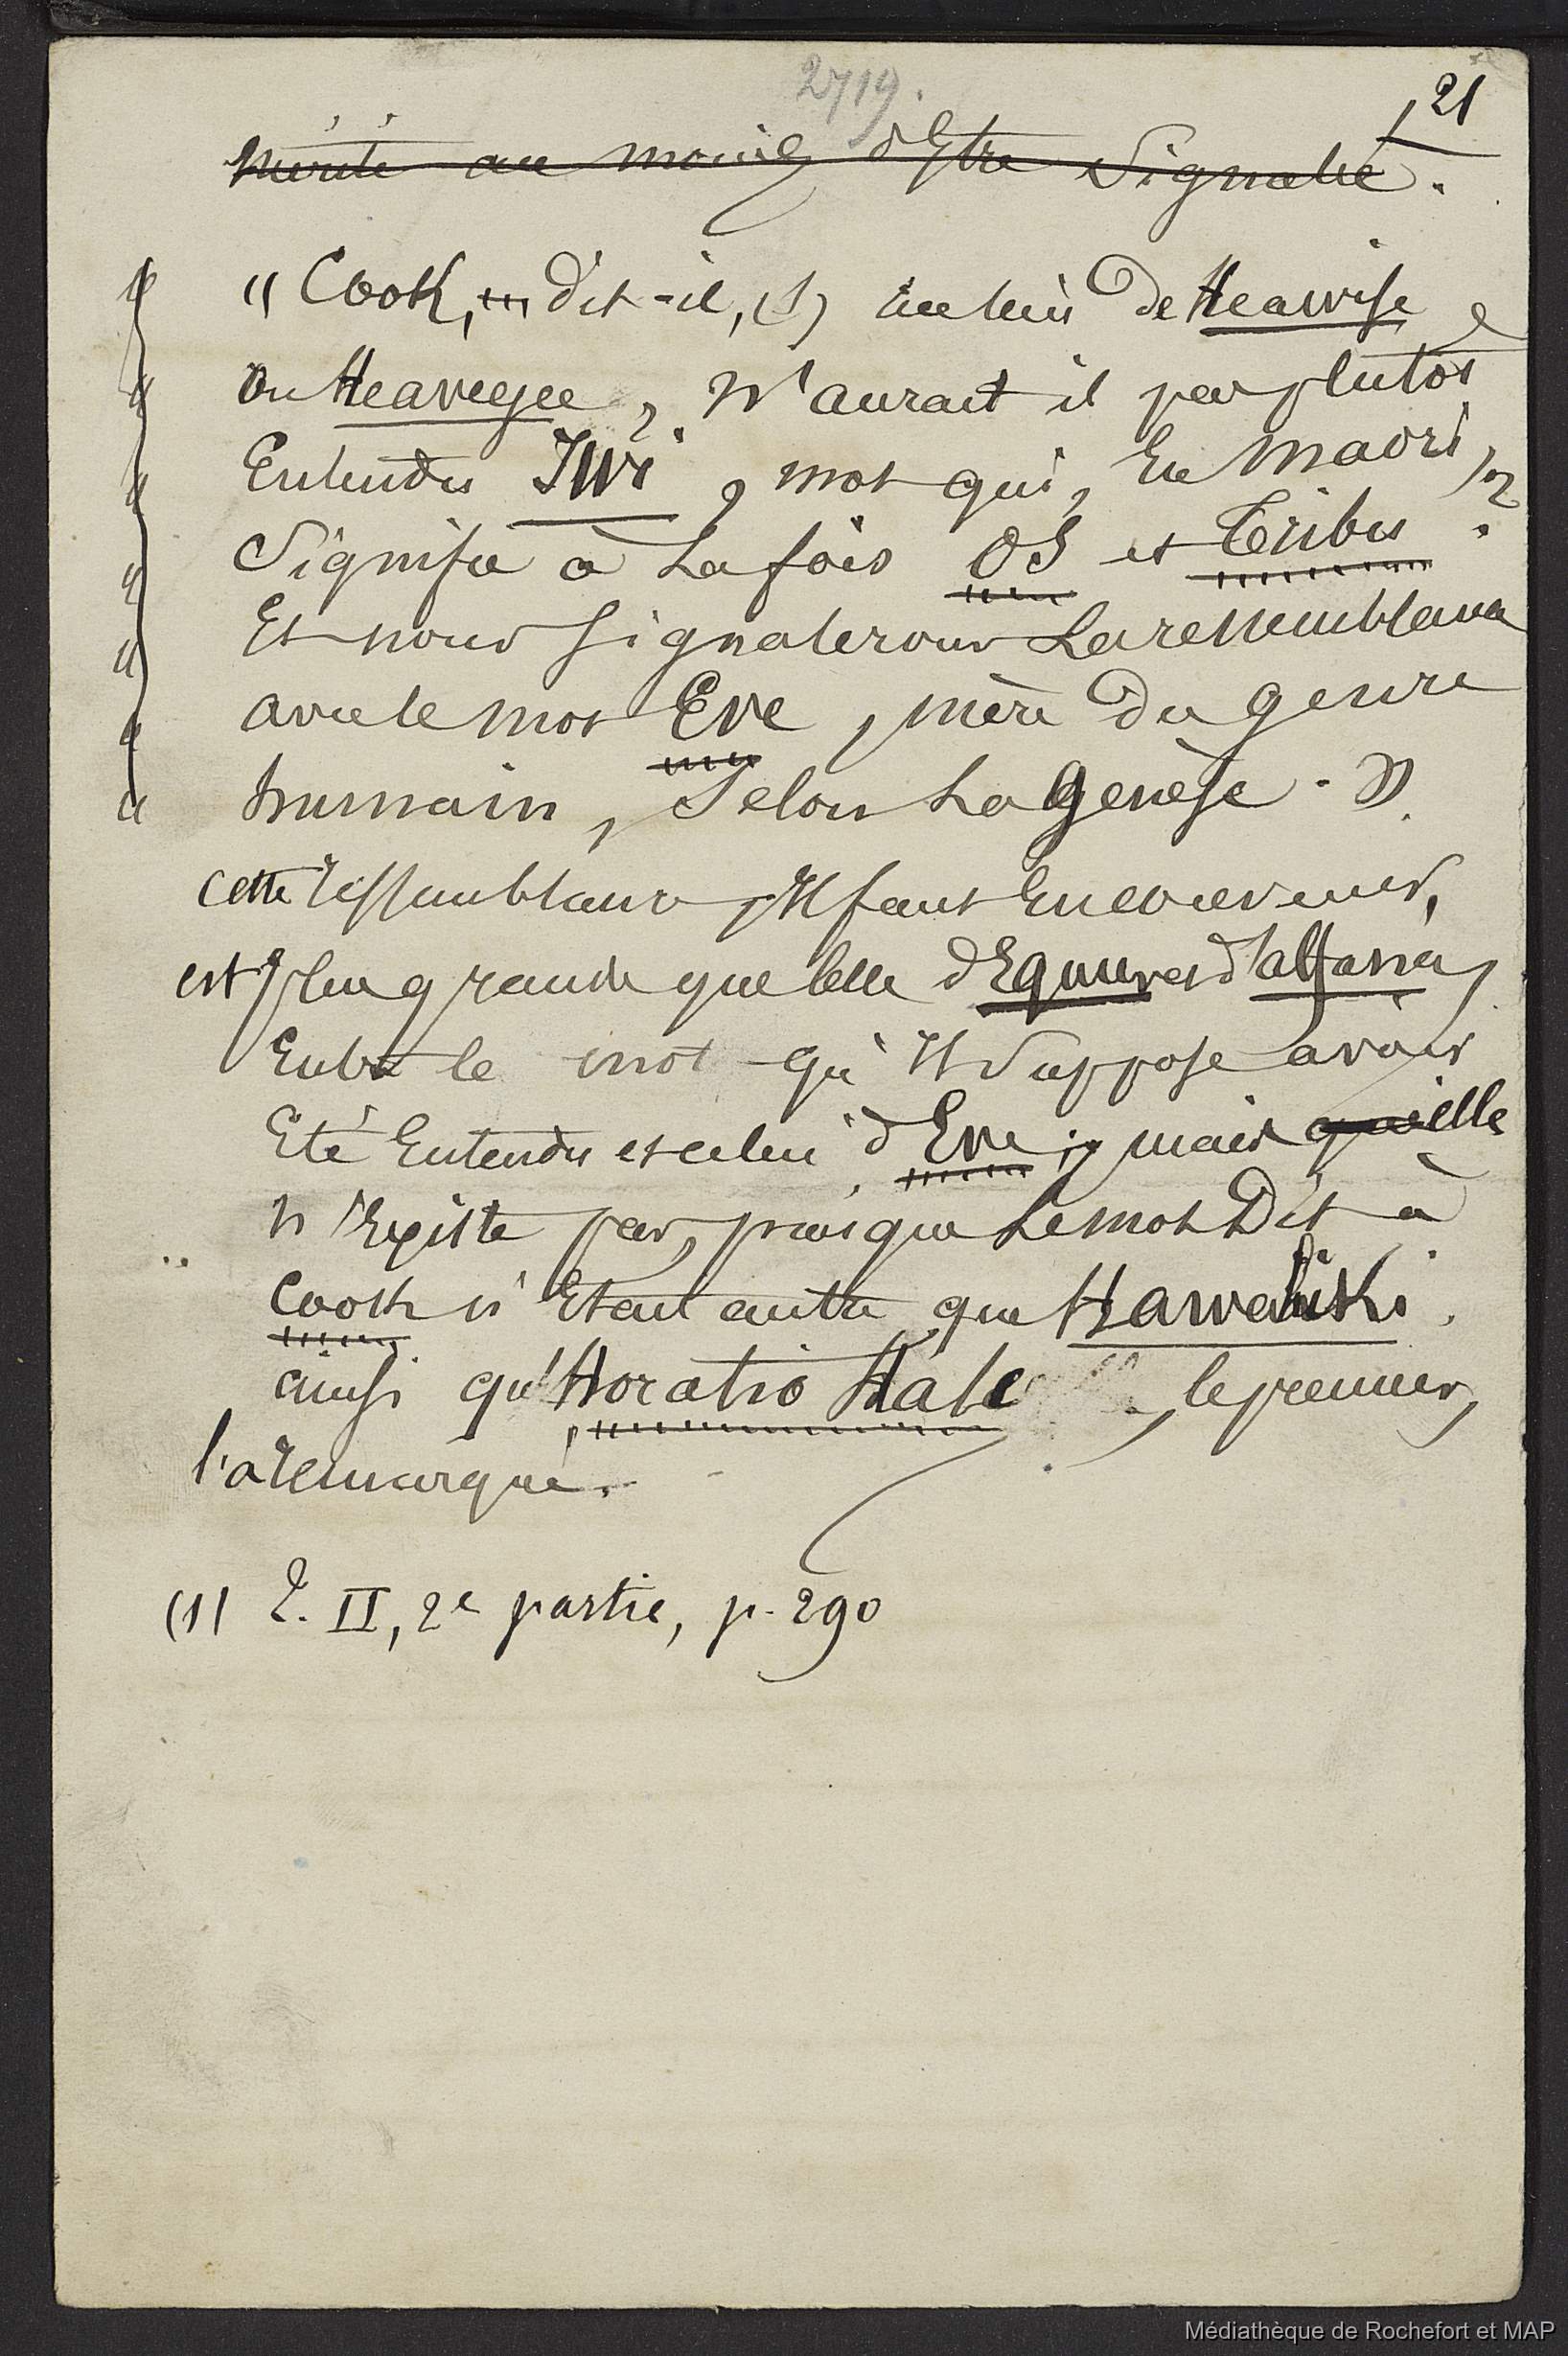 2719.
21
mérite au moins d'Etre Signalé.
" Cook, dit-il, (1) au lieu de Heawise
" ou Heavegee, N'aurait il pas plutôt
" Entendu Iwi, mot qui, En Maori,
" Signifie à La fois OS et Tribu ?
" Et nous signalerons La ressemblance
" avec le mot Eve, mère Du genre
" humain, Selon La Genèse. "
cette ressemblance, Il faut En convenir,
est plus grande que celle d'Equus et d'alfana,
Entre le mot qu'Il Suppose avoir
Eté Entendu et celui d'Eve ; mais qu'elle
n'Existe pas, puisque Le mot Dit à
Cook n'Etait autre que Hawahiki
ainsi qu'Horatio Hale, le premier,
l'a remarqué.
(1) T. II, 2e partie, p. 290
Médiathèque de Rochefort et MAP